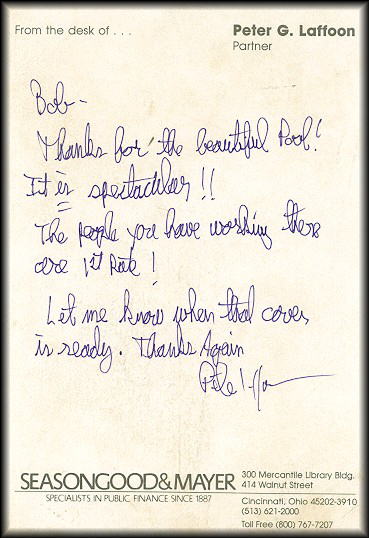 From the desk of . . .
Peter G. Laffoon
Partner
Bob-
Thanks for the beautiful Pool!
It is spectacular !!
The people you have working there
are 1st Rate !
Let me know when that cover
is ready. Thanks Again
Pete
SEASONGOOD & MAYER
SPECIALISTS IN PUBLIC FINANCE SINCE 1887
300 Mercantile Library Bldg.
414 Walnut Street
Cincinnati, Ohio 45202-3910
(513) 621-2000
Toll Free (800) 767-7207